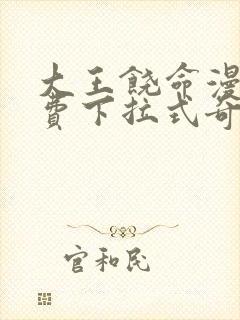 大王饶命漫
费下拉式奇
官和民